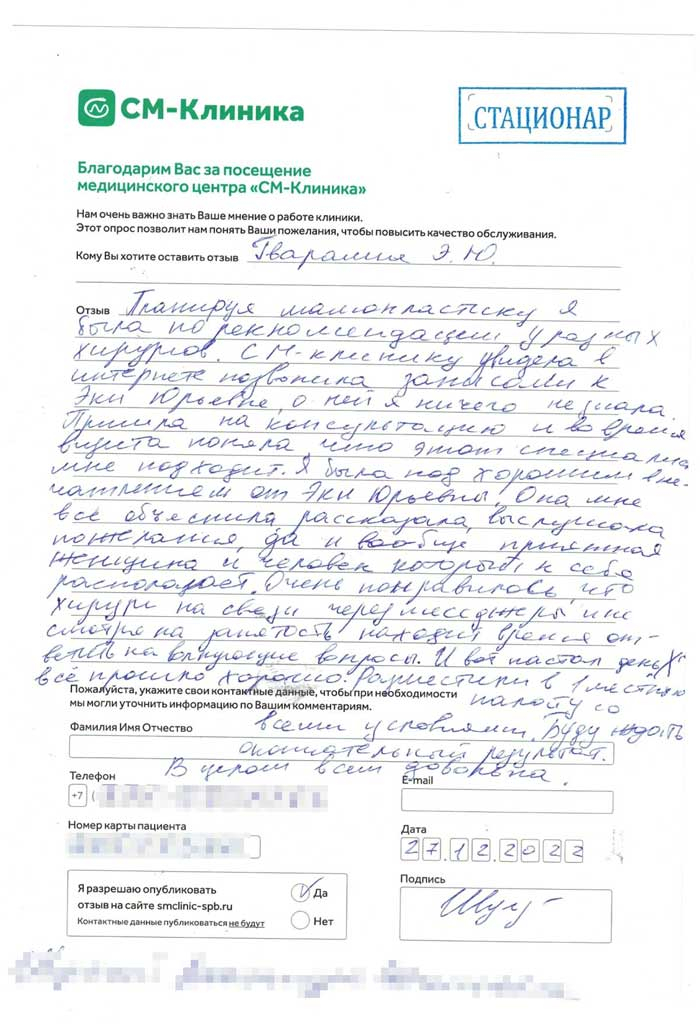 СМ-Клиника
СТАЦИОНАР
Благодарим Вас за посещение
медицинского центра «СМ-Клиника»
Нам очень важно знать Ваше мнение о работе клиники.
Этот опрос позволит нам понять Ваши пожелания, чтобы повысить качество обслуживания.
Кому Вы хотите оставить отзыв Гварамия Э. Ю.
Отзыв Планируя мамопластику я
была по рекомендации у разных
хирургов. СМ-клинику увидела в
интернете позвонила записали к
Эки Юрьевне, о ней я ничего не знала.
Пришла на консультацию и во время
визита поняла, что этот специалист
мне подходит. Я была под хорошим впе-
чатлением от Эки Юрьевны. Она мне
всё объяснила, рассказала, выслушала
пожелания, да и вообще приятная
женщина и человек который к себе
располагает. Очень понравилось, что
хирург на связи через мессенджеры и не
смотря на занятость находит время от-
ветить на волнующие вопросы. И вот настал день Х
всё прошло хорошо. Разместили в 1 местную
Пожалуйста, укажите свои контактные данные, чтобы при необходимости
мы могли уточнить информацию по Вашим комментариям.
палату со
всеми условиями. Буду ждать
Фамилия Имя Отчество
окончательный результат.
В целом всем довольна.
Телефон
+7 (
E-mail
Номер карты пациента
Дата
27.12.2022
Я разрешаю опубликовать
отзыв на сайте smclinic-spb.ru
Контактные данные публиковаться не будут
Да
Нет
Подпись